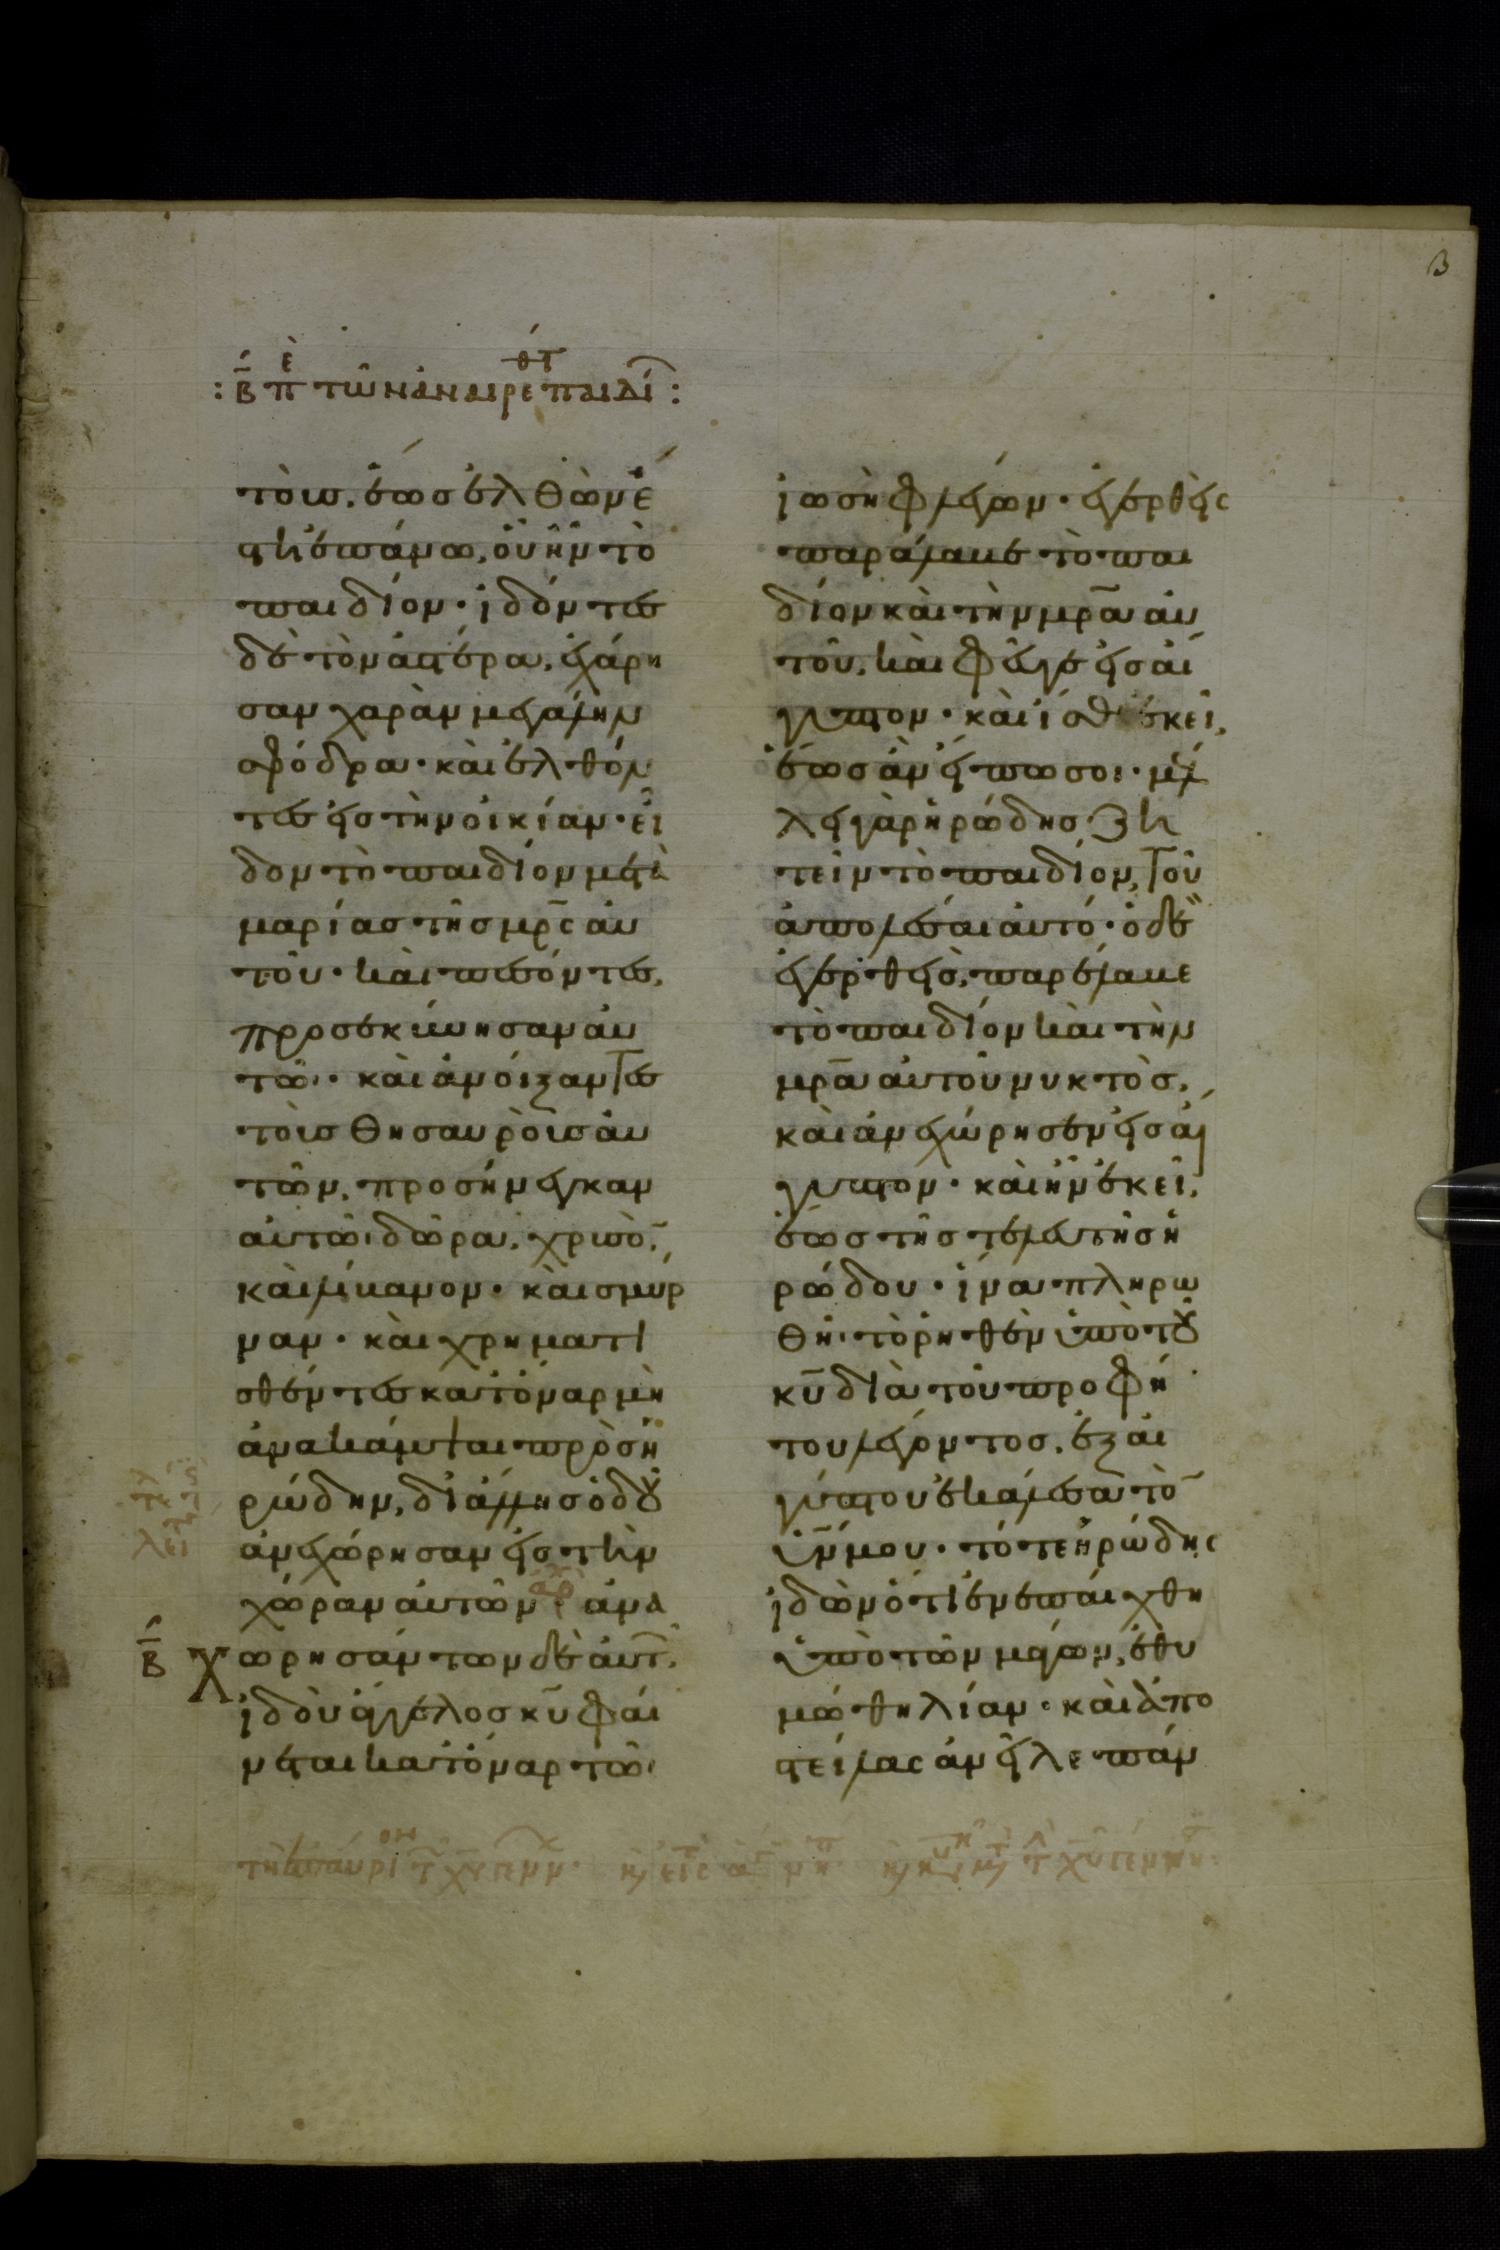 β
β περ τῶν ἀναιρεθέντ παιδί
τοὺς, ἕως ἐλθὼν ἔ
στη ἐπάνω, οὗ ἦν τὸ
παιδίον · ἰδόντες
δὲ τὸν ἀστέρα, ἐχάρη
σαν χαρὰν μεγάλην
σφόδρα · καὶ ἐλθόν
τες εἰς τὴν οἰκίαν · εἶ
δον τὸ παιδίον μετὰ
μαρίας τῆς μρ̅ς αὐ
τοῦ · καὶ πεσόντες,
προσεκύνησαν αὐ
τῶι · καὶ ἀνοίξαντες
τοὺς θησαυροὺς αὐ
τῶν, προσήνεγκαν
αὐτῶι δῶρα, χρυσὸ̅,
καὶ λίβανον · καὶ σμύρ
ναν · καὶ χρηματι
σθέντες κατ' ὄναρ μὴ
ἀνακάμψαι πρὸς ἡ
ρώδην, δι' ἄλλης ὁδοῦ
ἀνεχώρησαν εἰς τὴν
χώραν αὐτῶν · ἀνα
β χωρησάντων δὲ αὐτ,
ἰδοὺ ἄγγελος κ̅υ φαί
νεται κατ' ὄναρ τῶι
ἰωσὴφ λέγων · ἐγερθεὶς
παράλαβε τὸ παι
δίον καὶ τὴν μρ̅α αὐ
τοῦ, καὶ φεῦγε εἰς αἴ
γυπτον · καὶ ἴσθι ἐκεῖ,
ἕως ἂν εἴπω σοι · μέλ
λει γὰρ ἡρώδης ζη
τεῖν τὸ παιδίον, τοῦ
ἀπολέσαι αὐτό · ὁ δὲ
ἐγερθεὶς, παρέλαβε
τὸ παιδίον καὶ τὴν
μρ̅α αὐτοῦ νυκτὸς,
καὶ ἀνεχώρησεν εἰς αἴ
γυπτον · καὶ ἦν ἐκεῖ,
ἕως τῆς τελευτῆς ἡ
ρώδου · ἵνα πληρω
θῆι τὸ ῥηθὲν ὑπὸ τοῦ
κ̅υ διὰ τοῦ προφή
του λέγοντος, ἐξ αἰ
γύπτου ἐκάλεσα τὸ̅
υ̅ν μου · τότε ἡρώδης
ἰδὼν ὅτι ἐνεπαίχθη
ὑπὸ τῶν μάγων, ἐθυ
μώθη λίαν · καὶ ἀπο
στείλας ἀνεῖλε πάν